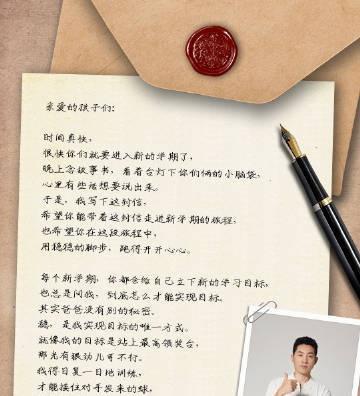 亲爱的孩子们:
时间真快，
很快你们就要进入新的学期了，
晚上念故事书，看着台灯下你们俩的小脑袋，
心里有些话想要说出来。
于是，我写下这封信，
希望你们能带着这封信走进新学期的旅程，
也希望你在这段旅程中，
用稳稳的脚步，跑得开开心心。
每个新学期，你都会给自己立下新的学习目标，
也总是问我，到底怎么才能实现目标。
其实爸爸没有别的秘密。
稳，是我实现目标的唯一方式。
就像我的目标是站上最高领奖台，
那光有狠劲儿可不行。
我得日复一日地训练，
才能接住对手发来的球，